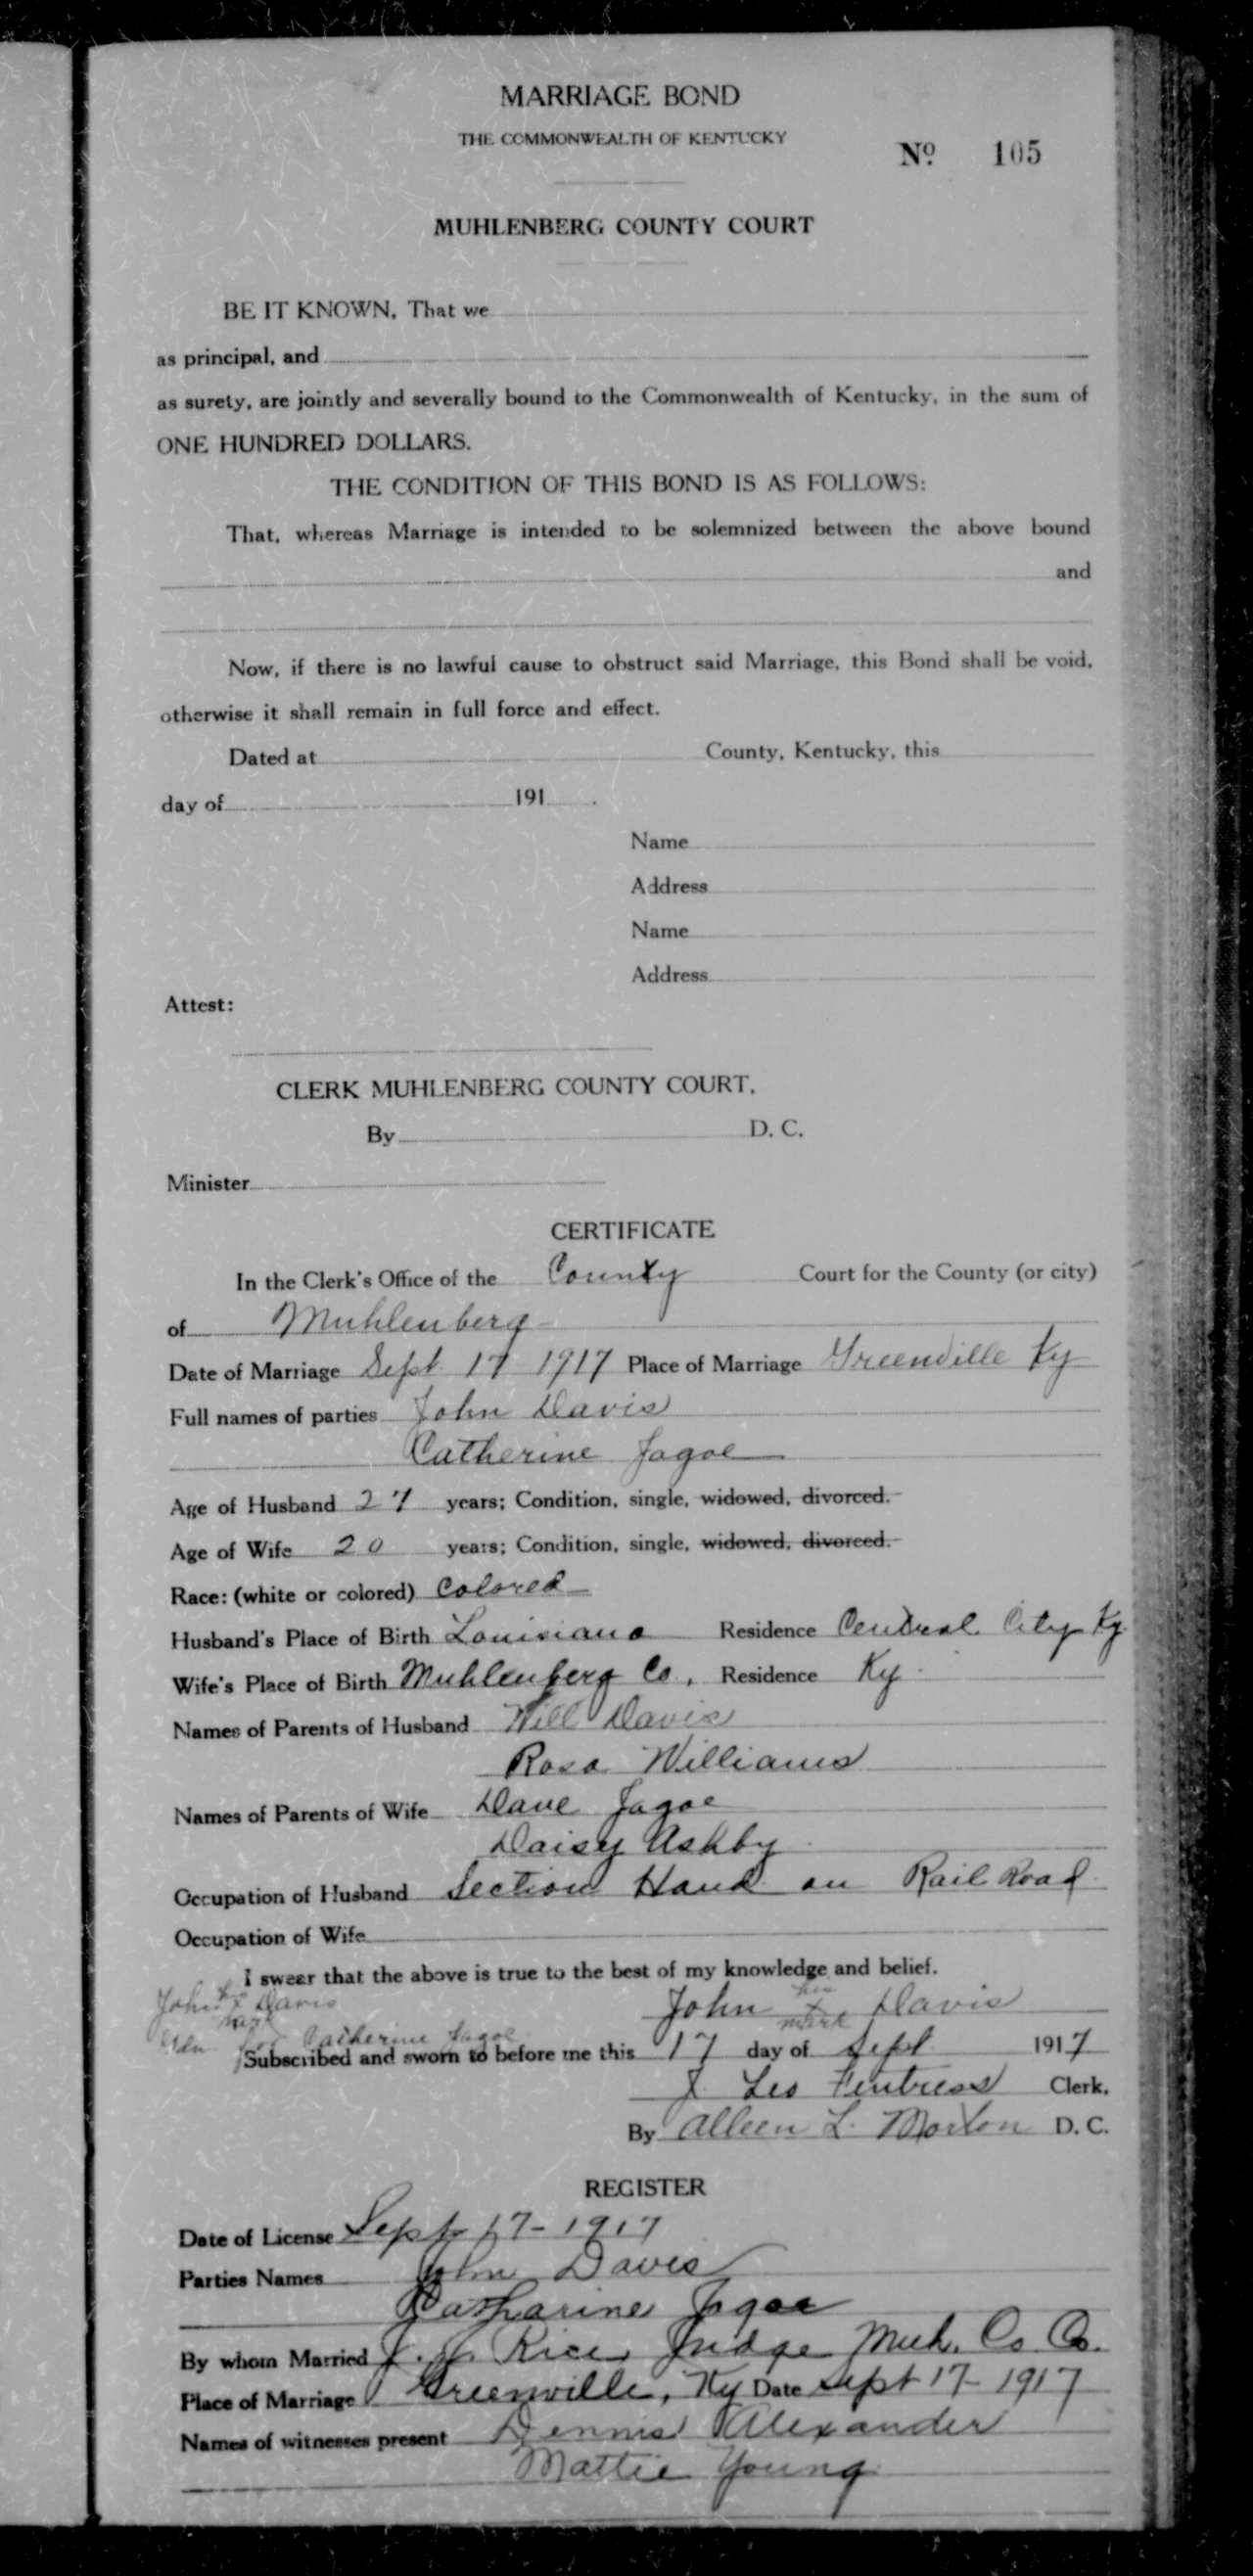 MARRIAGE BOND
THE COMMONWEALTH OF KENTUCKY
No. 105
MUHLENBERG COUNTY COURT
BE IT KNOWN, That we
as principal, and
as surety, are jointly and severally bound to the Commonwealth of Kentucky, in the sum of
ONE HUNDRED DOLLARS.
THE CONDITION OF THIS BOND IS AS FOLLOWS:
That, whereas Marriage is intended to be solemnized between the above bound
and
Now, if there is no lawful cause to obstruct said Marriage, this Bond shall be void,
otherwise it shall remain in full force and effect.
Dated at County, Kentucky, this
day of 191 .
Name
Address
Name
Address
Attest:
CLERK MUHLENBERG COUNTY COURT,
By D. C.
Minister
CERTIFICATE
In the Clerk's Office of the County Court for the County (or city)
of Muhlenberg
Date of Marriage Sept. 17 1917 Place of Marriage Greenville Ky
Full names of parties John Davis
Catherine Jagoe
Age of Husband 27 years; Condition, single, widowed, divorced.
Age of Wife 20 years; Condition, single, widowed, divorced.
Race: (white or colored) Colored
Husband's Place of Birth Louisiana Residence Central City Ky.
Wife's Place of Birth Muhlenberg Co., Residence Ky.
Names of Parents of Husband Will Davis
Rosa Williams
Names of Parents of Wife Dave Jagoe
Daisy Ashby
Occupation of Husband Section Hand on Rail Road
Occupation of Wife
I swear that the above is true to the best of my knowledge and belief.
John his x mark Davis
John his x mark Davis
for Catherine Jagoe
Subscribed and sworn to before me this 17 day of Sept. 1917
J. Leo Fentress Clerk.
By Alleen L. Morton D. C.
REGISTER
Date of License Sept 17-1917
Parties Names John Davis
Catharine Jagoe
By whom Married J. J. Rice Judge Muh. Co Co.
Place of Marriage Greenville, Ky Date Sept 17-1917
Names of witnesses present Dennis Alexander
Mattie Young